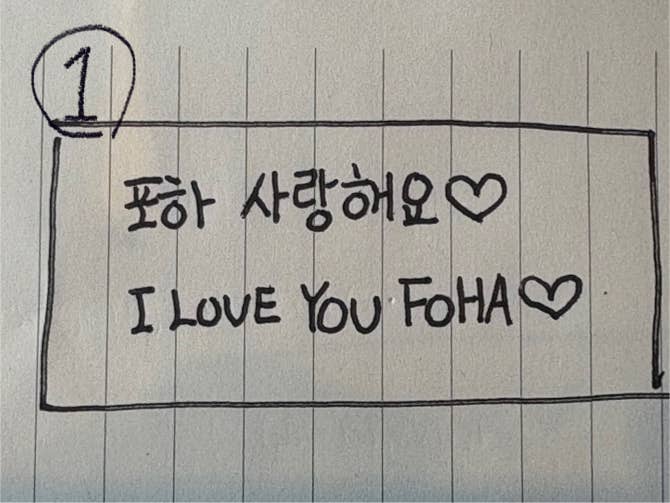 1
포하 사랑해요♡
I LOVE YOU FOHA♡